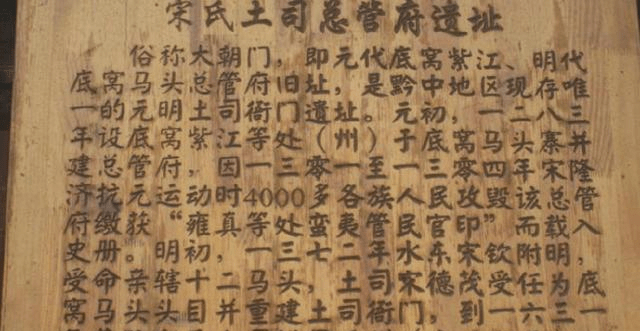 宋氏土司总管府遗址
俗称大朝门，即元代底窝紫江、明代
底窝马头总管府旧址，是黔中地区现存唯
一的元明土司衙门遗址。元初，一二八三
年设底窝紫江等处（州）于底窝马头寨并
建总管府，因一三零一至一三零四年宋隆
济抗元运动时4000多各族人民攻毁该总管
府缴获“雍真等处蛮夷管民官印”而载入
史册。明初，一三七二年水东宋钦附明，
受命亲辖十二马头，土司宋德茂受任为底
窝马头头目并重建土司衙门，到一六三一